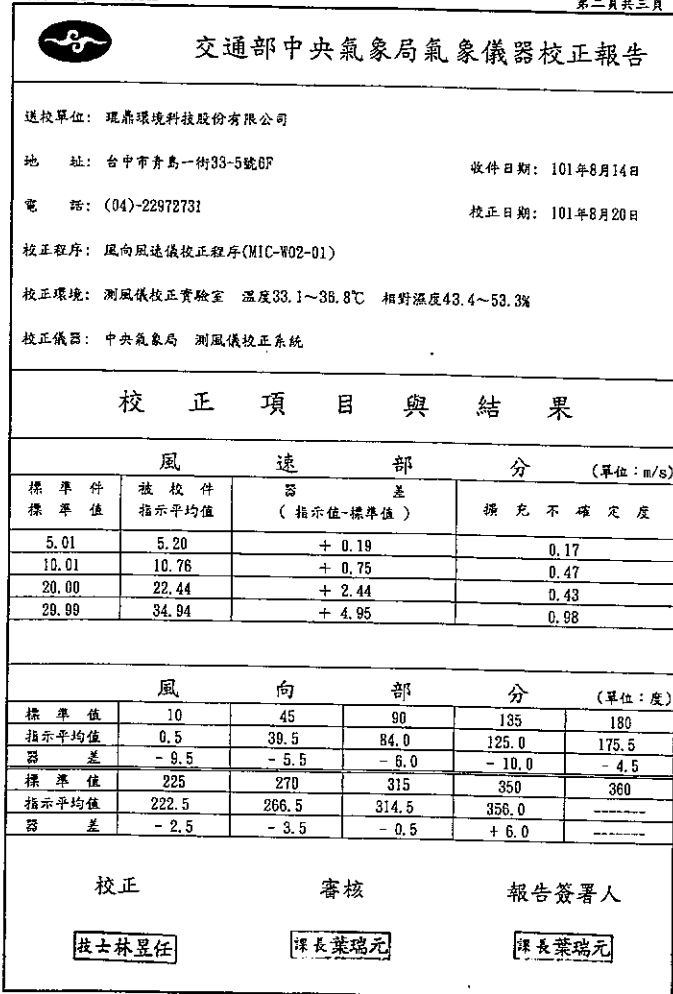 第二頁共三頁
交通部中央氣象局氣象儀器校正報告
送校單位: 琨鼎環境科技股份有限公司
地 址: 台中市青島一街33-5號6F
收件日期: 101年8月14日
電 話: (04)-22972731
校正日期: 101年8月20日
校正程序: 風向風速儀校正程序(MIC-W02-01)
校正環境: 測風儀校正實驗室 溫度33.1~36.8℃ 相對濕度43.4~53.3%
校正儀器: 中央氣象局 測風儀校正系統
校 正 項 目 與 結 果
風 速 部 分 (單位:m/s)
標 準 件 被 校 件 器 差 擴 充 不 確 定 度
標 準 值 指示平均值 ( 指示值-標準值 )
5.01 5.20 + 0.19 0.17
10.01 10.76 + 0.75 0.47
20.00 22.44 + 2.44 0.43
29.99 34.94 + 4.95 0.98
風 向 部 分 (單位:度)
標 準 值 10 45 90 135 180
指示平均值 0.5 39.5 84.0 125.0 175.5
器 差 - 9.5 - 5.5 - 6.0 - 10.0 - 4.5
標 準 值 225 270 315 350 360
指示平均值 222.5 266.5 314.5 356.0 -------
器 差 - 2.5 - 3.5 - 0.5 + 6.0 -------
校正 審核 報告簽署人
技士林昱任 課長葉瑞元 課長葉瑞元